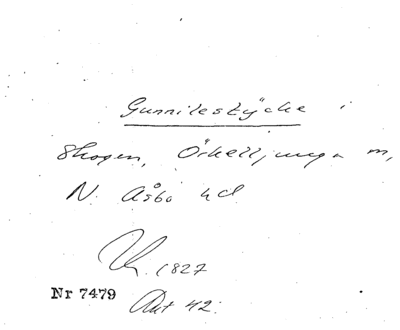 Gunnilestycke i
Skogen, Örkelljunga m,
N. Åsbo hd
1827
Nr 7479
Akt 42.